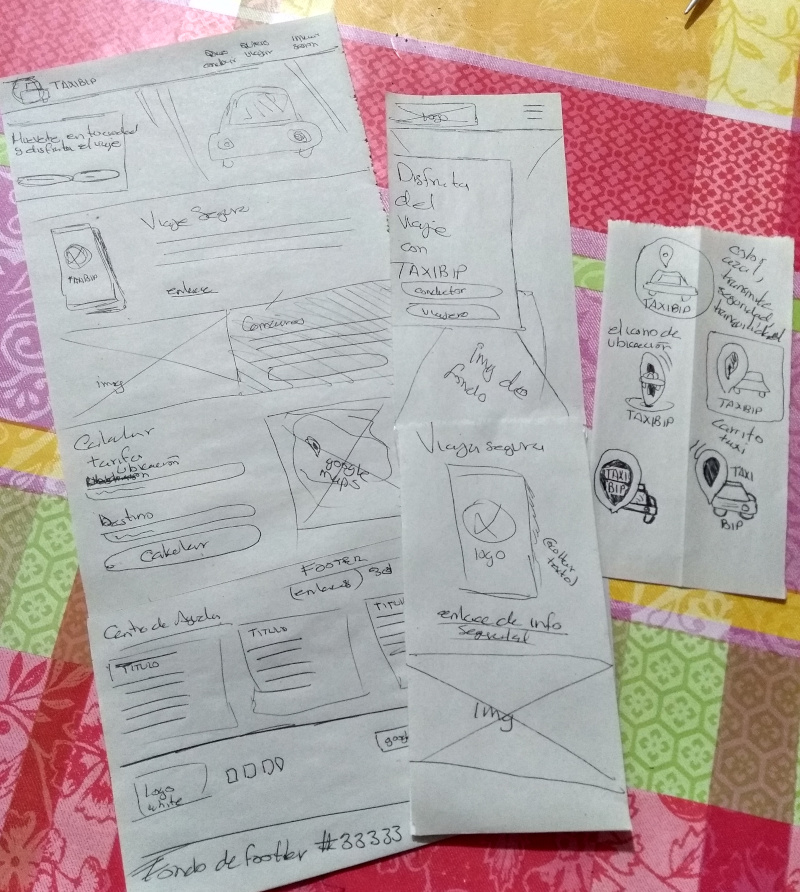 TAXIBIP
Muevete en tu ciudad
y disfruta el viaje
Viaje Seguro
TAXIBIP
enlace
img
Calcular
tarifa
ubicación
Destino
Calcular
google
maps
FOOTER
(enlaces)
Centro de Ayuda
TITULO
TITULO
TITUL
Logo
white
goog
Fondo de footer #33333
logo
Disfruta
del
viaje
con
TAXIBIP
conductor
viajero
Img de
fondo
Viaje segura
logo
enlace de info
Img
TAXIBIP
color
azul,
transmite
seguridad,
tranquilidad
el icono de
ubicación
TAXIBIP
TAXIBIP
carrito
taxi
TAXI
BIP
TAXI
BIP